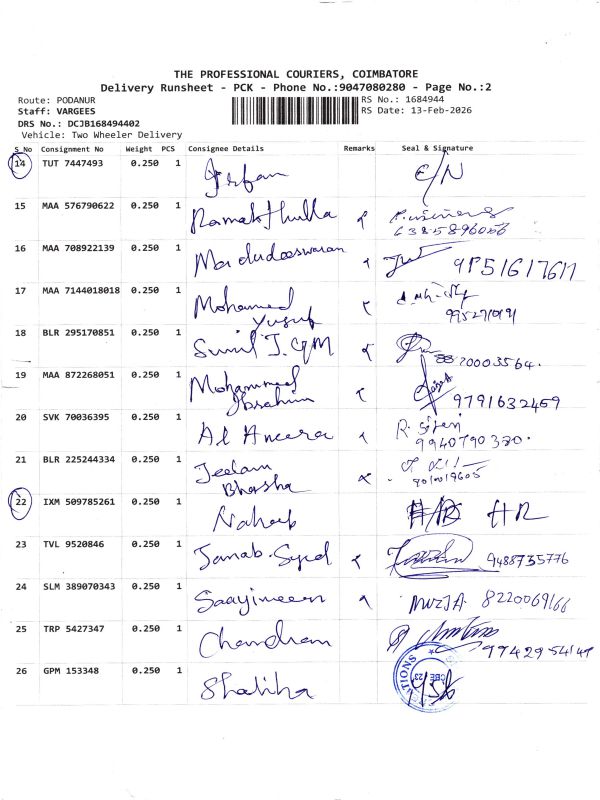 THE PROFESSIONAL COURIERS, COIMBATORE
Delivery Runsheet - PCK - Phone No.:9047080280 - Page No.:2
Route: PODANUR RS No.: 1684944
Staff: VARGEES RS Date: 13-Feb-2026
DRS No.: DCJB168494402
Vehicle: Two Wheeler Delivery
S_No Consignment No Weight PCS Consignee Details Remarks Seal & Signature
14 TUT 7447493 0.250 1 Irfan E/N
15 MAA 576790622 0.250 1
6385896056
16 MAA 708922139 0.250 1 9751617617
17 MAA 7144018018 0.250 1 Mohamed
Yusuf
18 BLR 295170851 0.250 1 Sunil J. 8820003564.
19 MAA 872268051 1 0.250 Mohammed
Ibrahim 9791632459
20 SVK 70036395 0.250 1 Al Ameera R.
9940790380.
21 BLR 225244334 0.250 1 Jeelan
Bhasha
22 IXM 509785261 0.250 1
23 TVL 9520846 0.250 1 Janab. Syed 9488735776
24 SLM 389070343 0.250 1 8220069166
25 TRP 5427347 0.250 1 Chandran
9942954149
26 GPM 153348 0.250 1